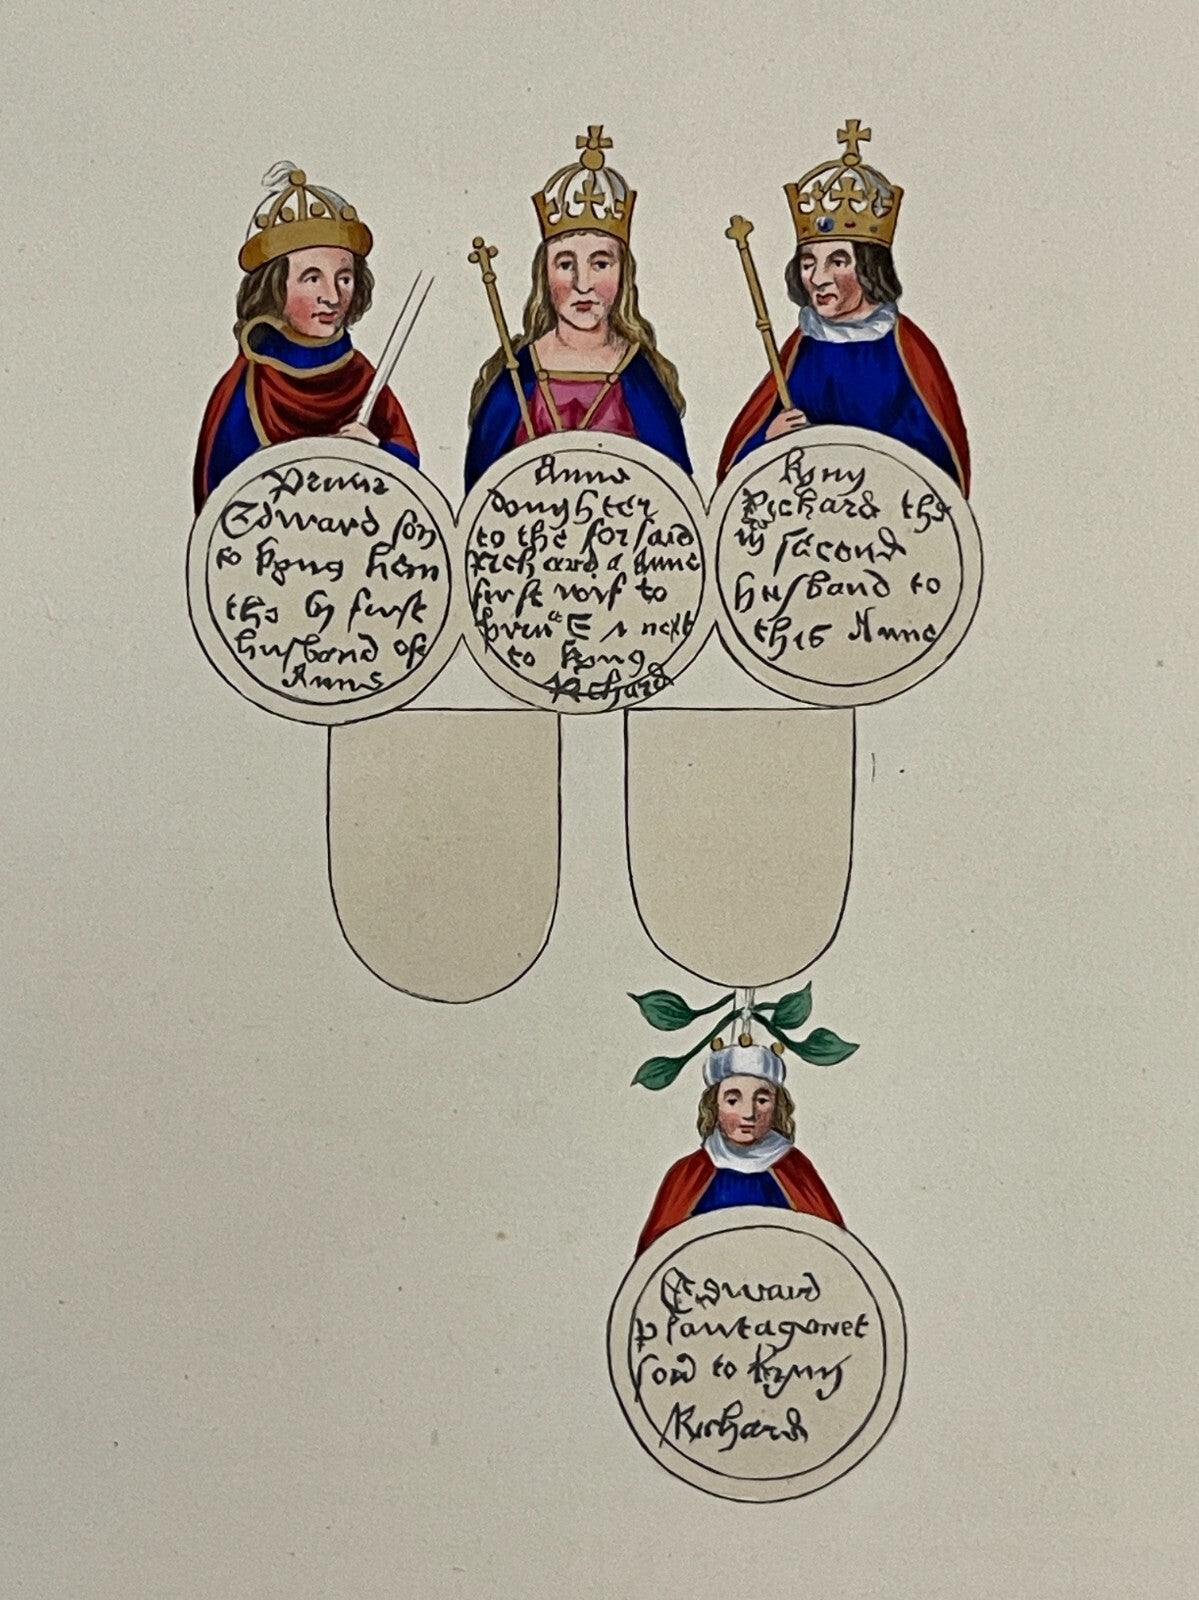 Prince
Edward son
to kyng henri
the vj first
husband of
Anne
Anne
doughter
to the forsaid
Richard & Anne
first wif to
E & next
to kyng
Richard
kyng
Richard the
iij second
husband to
this Anne
Edward
plantagenet
son to kyng
Richard